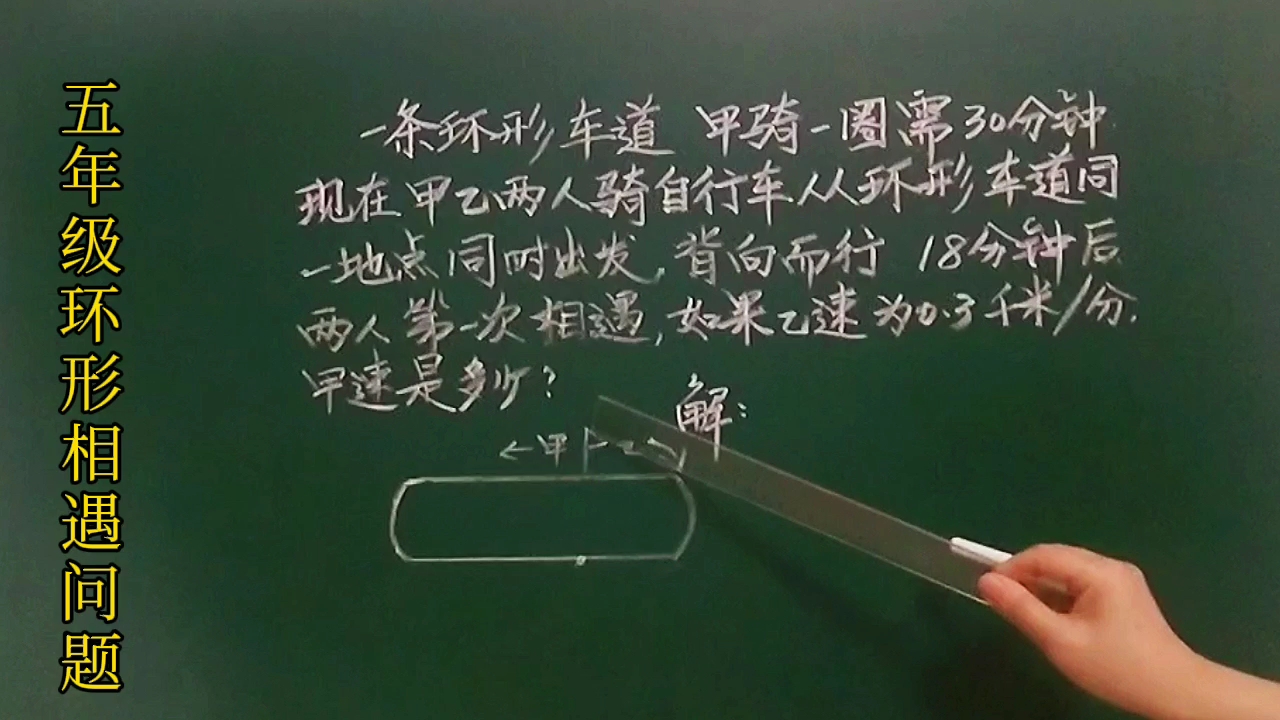 五年级环形相遇问题
一条环形车道 甲骑一圈需30分钟
现在甲乙两人骑自行车从环形车道同
一地点同时出发,背向而行 18分钟后
两人第一次相遇,如果乙速为0.3千米/分.
甲速是多少?
解:
←甲